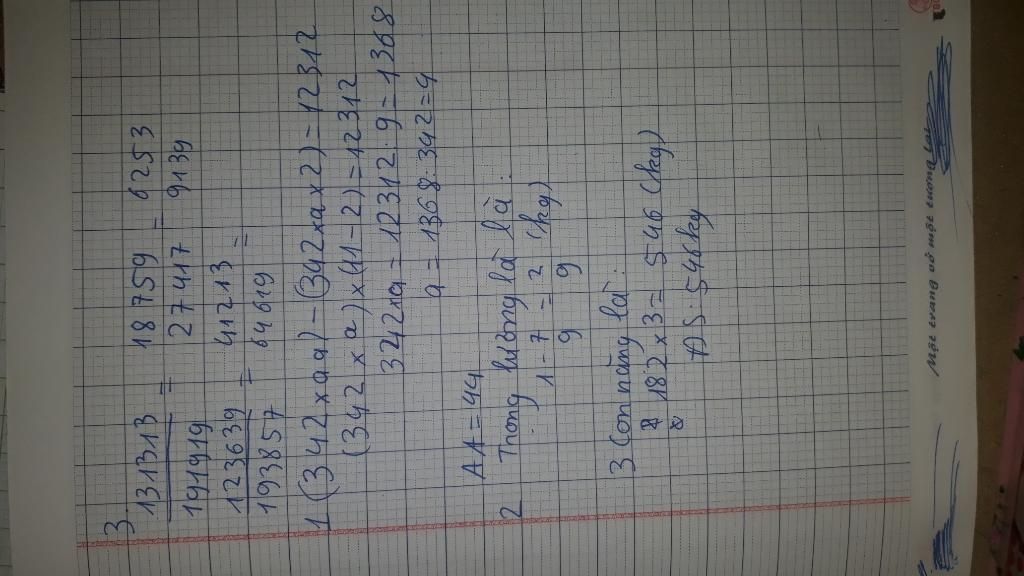 3.
131313 = 18759 = 6253
191919 27417 9139
123639 = 41213 =
193857 64619
1 (342 x aa) - (342 x a x 2) = 12312
(342 x a) x (11 - 2) = 12312
342 x a = 12312 : 9 = 1368
a = 1368 : 342 = 4
AA = 44
2 Trọng lượng là là :
1 - 7 = 2 (kg)
9 9
3 Con nặng là :
182 x 3 = 546 (kg)
ĐS : 546 kg
một trang vở một tương lai